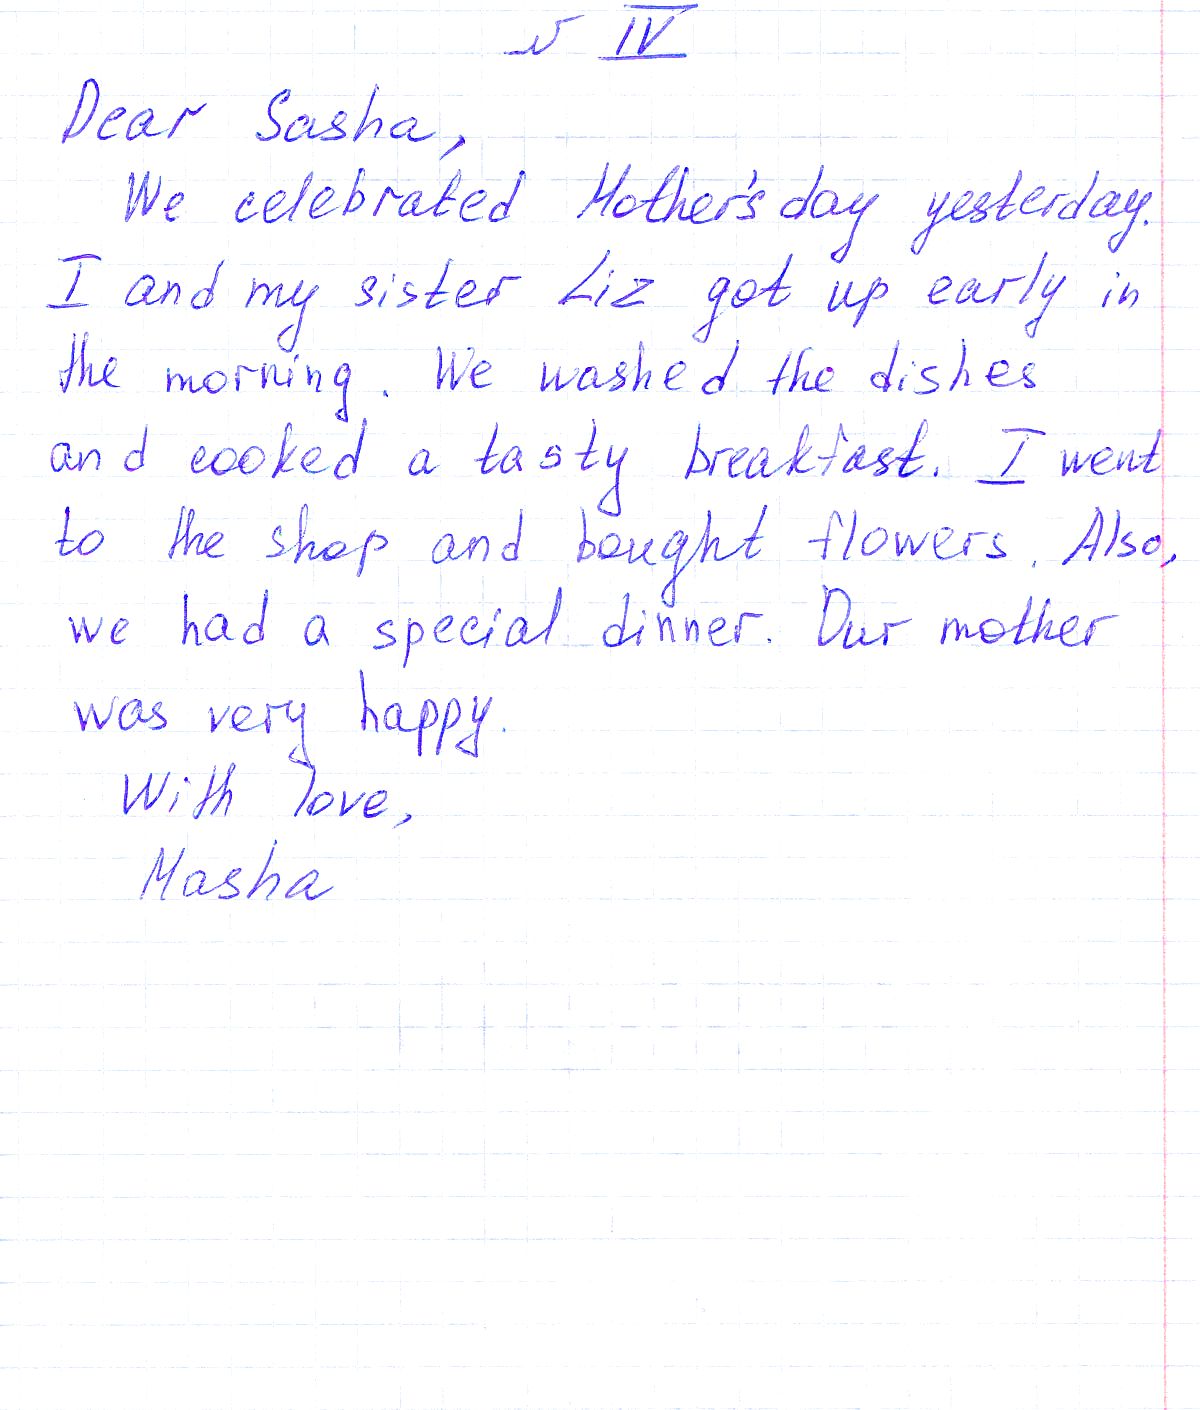 IV
Dear Sasha,
We celebrated Mother's day yesterday.
I and my sister Liz got up early in
the morning. We washed the dishes
and cooked a tasty breakfast. I went
to the shop and bought flowers. Also,
we had a special dinner. Our mother
was very happy.
With love,
Masha